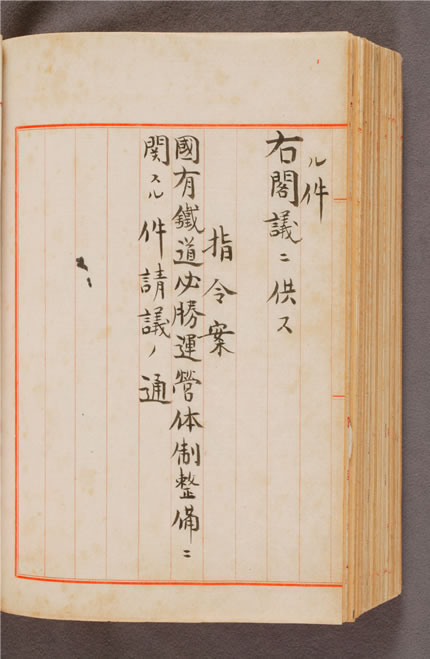 ル件
右閣議ニ供ス
指令案
國有鐵道必勝運營体制整備ニ
関スル件請議ノ通